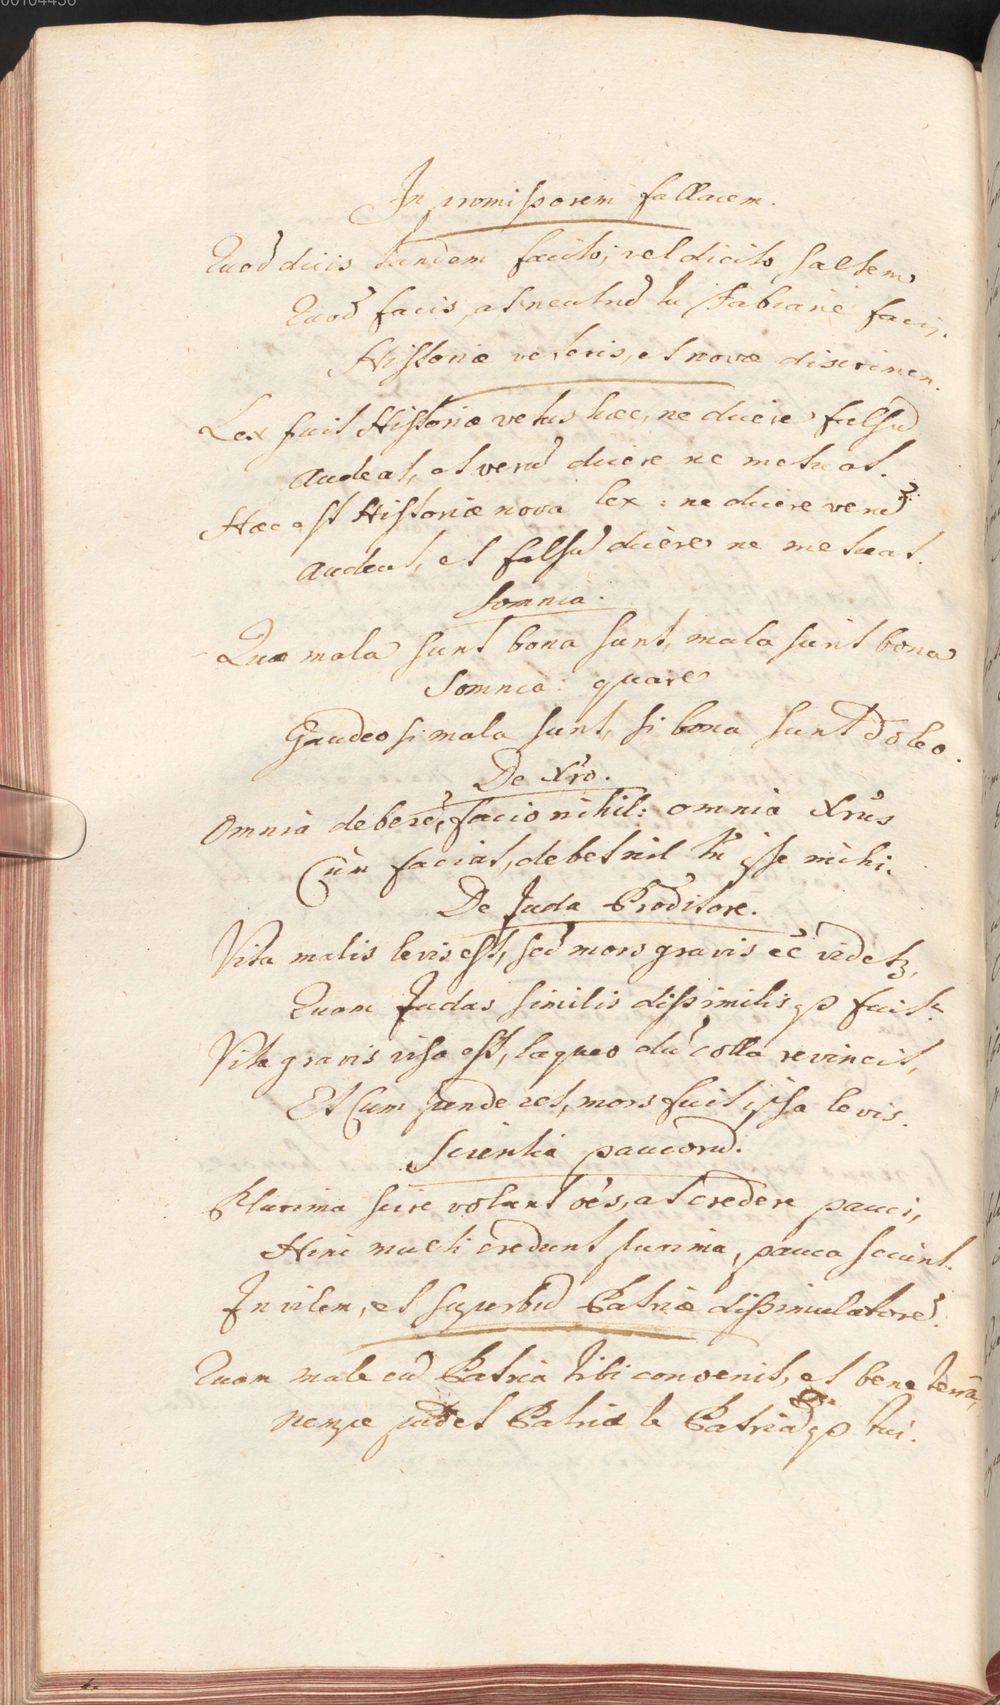 00104436
In promissorem fallacem.
Quod dicis tandem facito, vel dicito saltem
Quod facis, at neutrū tu Fabiane facis.
Historiæ veteris, et novæ discrimen.
Lex fuit Historiæ vetus hæc, ne dicere falsū
Audeat, et verū dicere ne metuat.
Hæc est Historiæ nova lex: ne dicere verū
Audeat, et falsū dicere ne metuat.
Somnia.
Quæ mala sunt bona sunt, mala sunt bona
Somnia: quare
Gaudeo si mala sunt, si bona sunt doleo.
De Xr̃o.
Omnia deberē, facio nihil: omnia Xr̃us
Cùm faciat, debet nil tñ ipse mihi.
De Juda Proditore.
Vita malis levis est, sed mors gravis eē videtʒ,
Quam Judas similis dissimilisqʒ fuit.
Vita gravis visa est, laqueo dū colla revincit,
Et Cum penderet, mors fuit ipsa levis.
Scientia paucorū.
Plurima scire volunt oēs, at credere pauci,
Hinc multi credunt plurima, pauca sciunt.
In vilem, et superbū Patriæ dissimulatorē.
Quam male cū Patria tibi convenit, et bene terrā,
Nempe pudet Patriæ te Patriāqʒ tui.